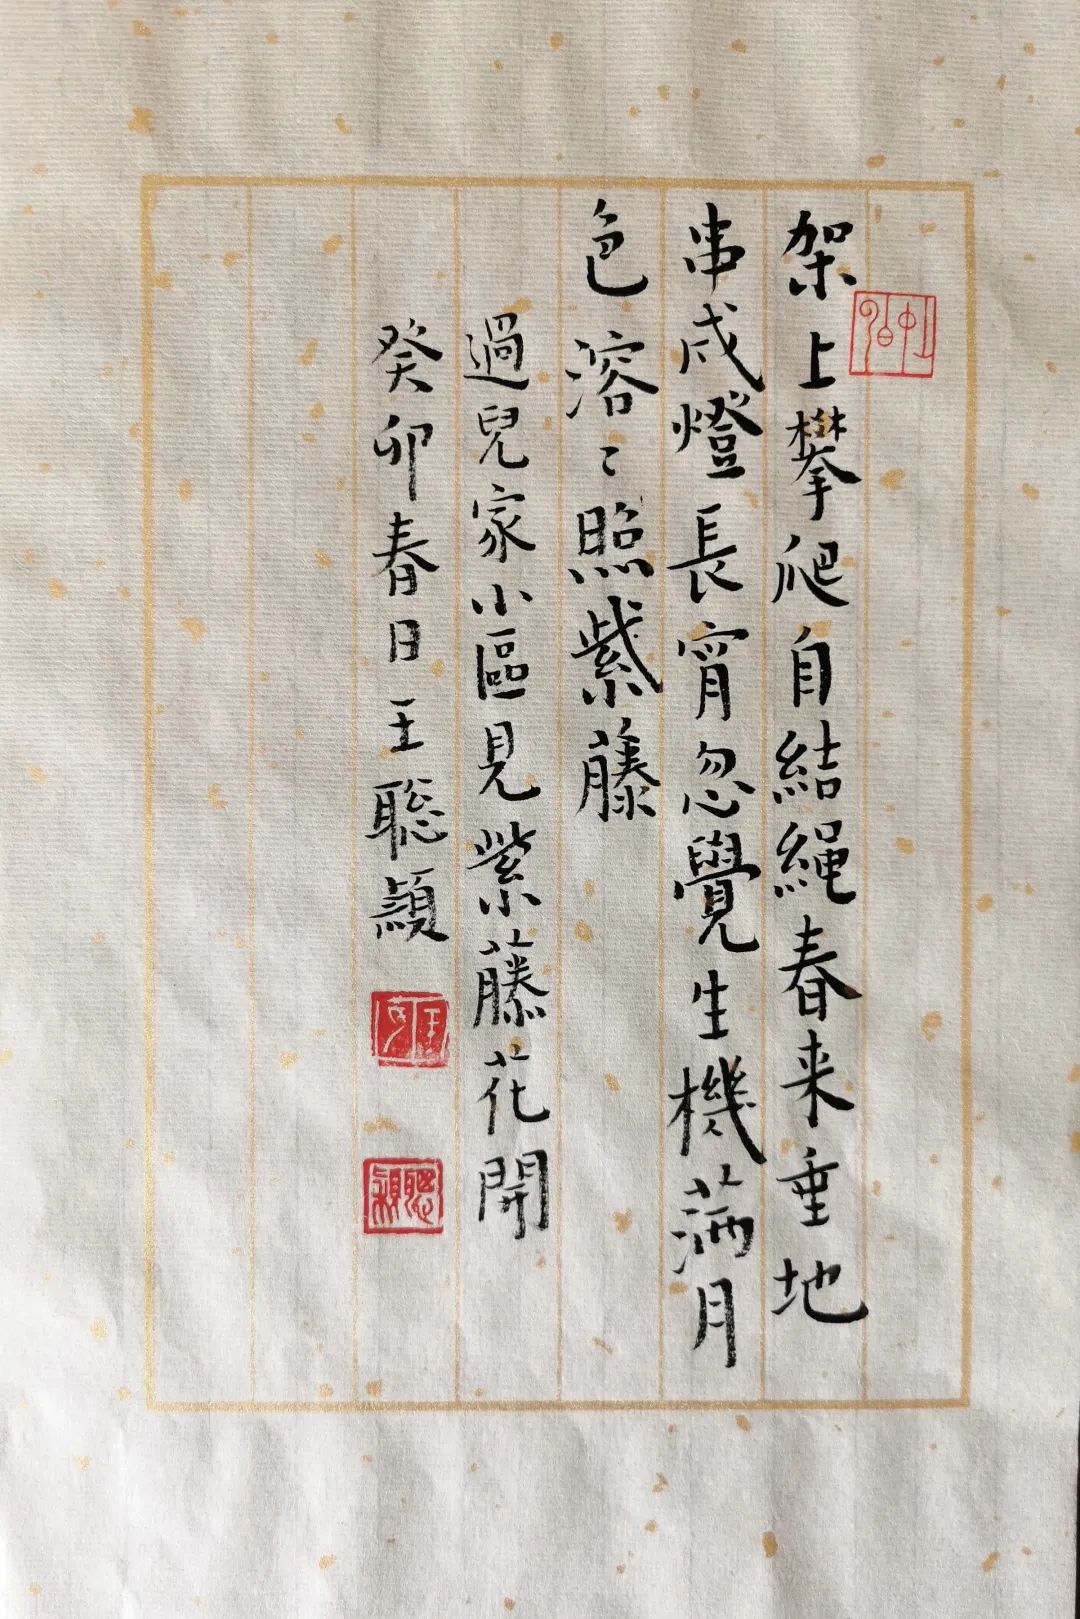 架上攀爬自結繩春来垂地
串成燈長宵忽覺生機满月
色溶〻照紫藤
過兒家小區見紫藤花開
癸卯春日王聡穎